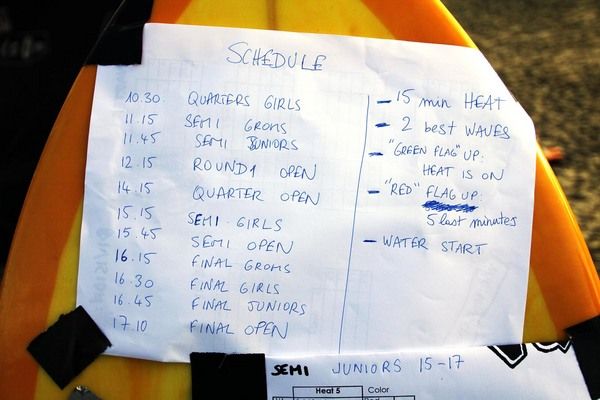 SCHEDULE
10.30 QUARTERS GIRLS
11.15 SEMI GROMS
11.45 SEMI JUNIORS
12.15 ROUND 1 OPEN
14.15 QUARTER OPEN
15.15 SEMI GIRLS
15.45 SEMI OPEN
16.15 FINAL GROMS
16.30 FINAL GIRLS
16.45 FINAL JUNIORS
17.10 FINAL OPEN
- 15 min HEAT
- 2 best WAVES
- "GREEN FLAG" UP:
HEAT IS ON
- "RED" FLAG UP:
5 last minutes
- WATER START
SEMI JUNIORS 15-17
Heat 5 Color